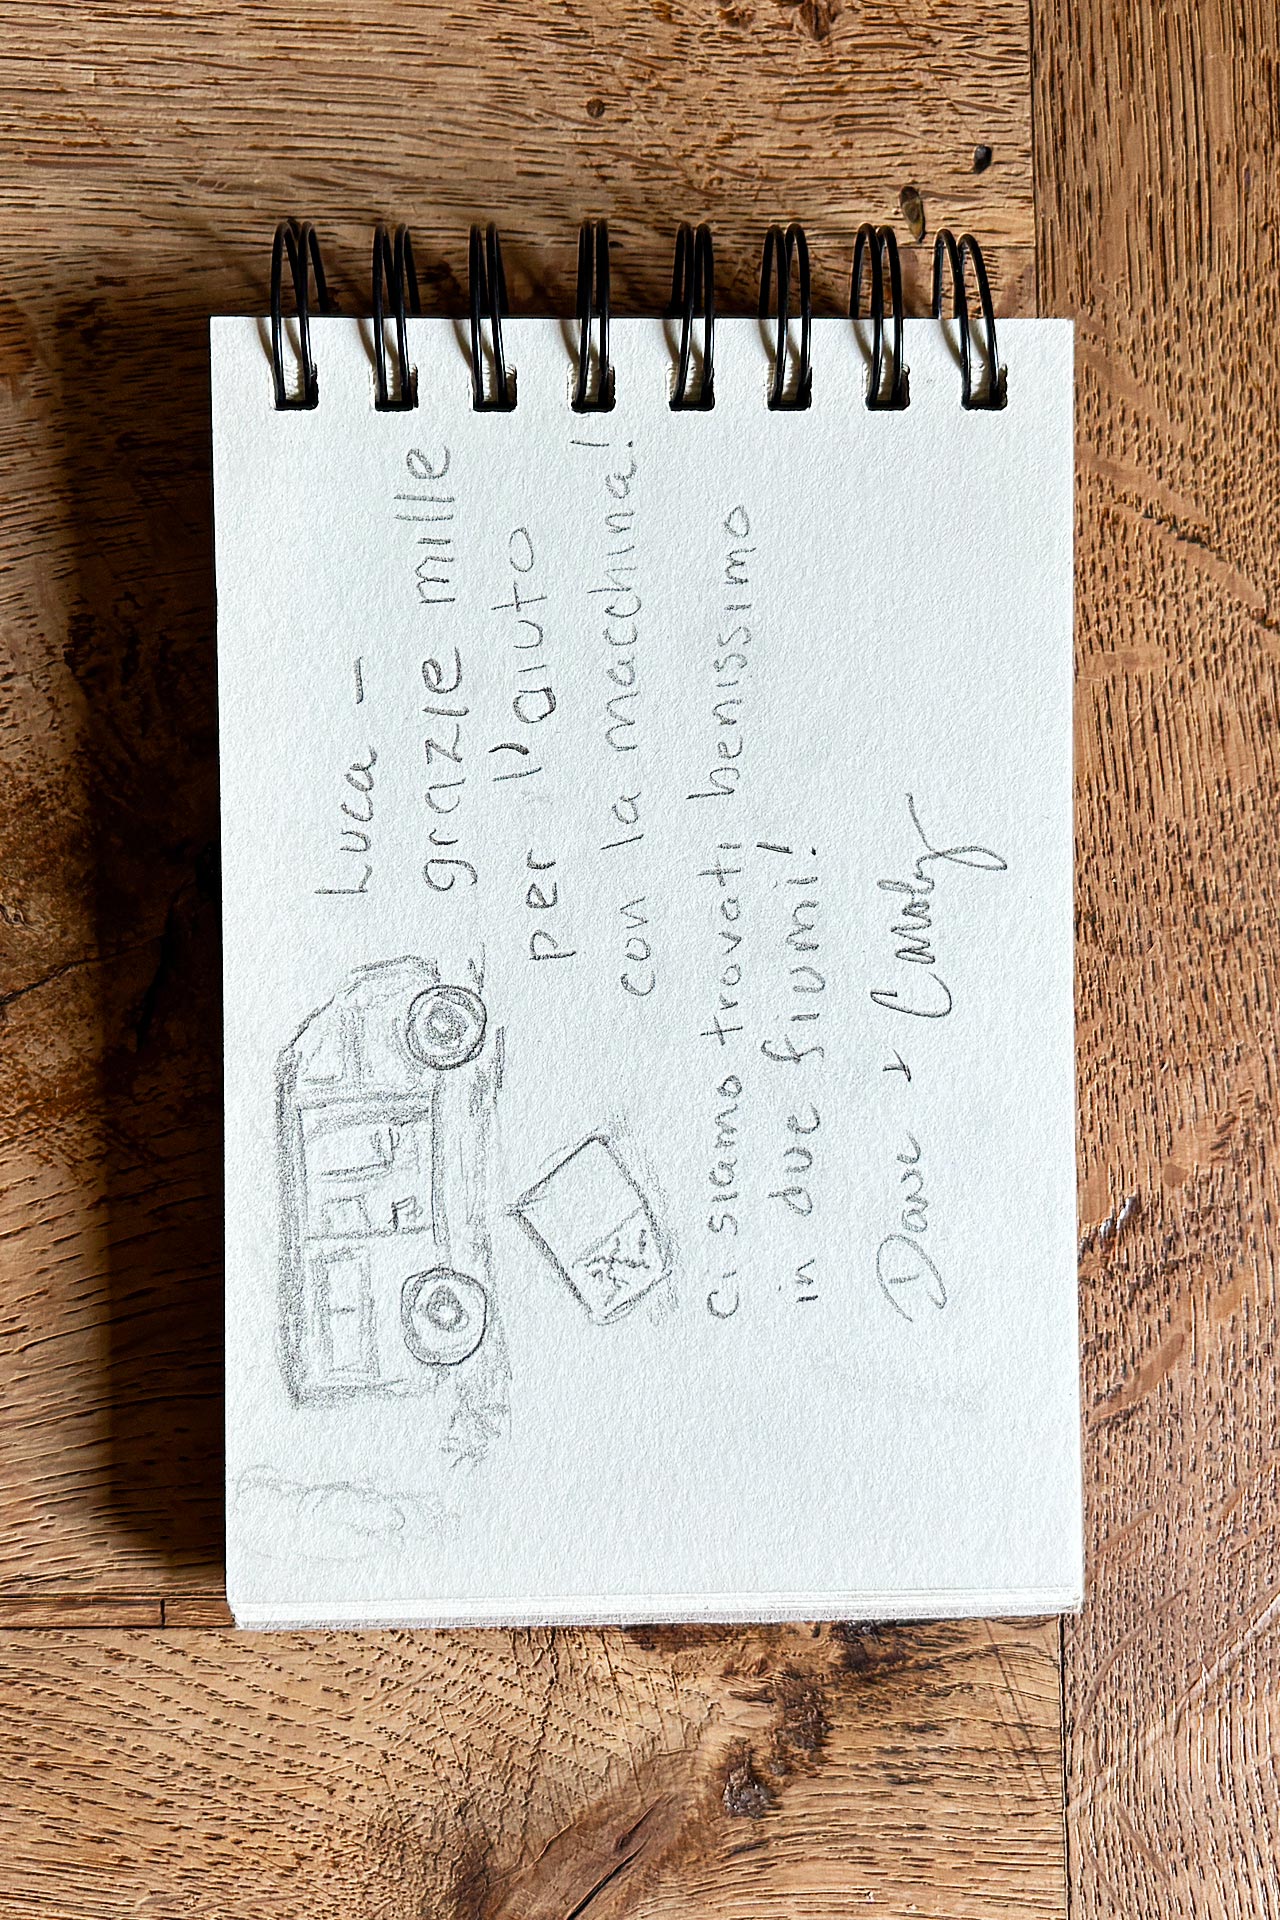 Luca –
grazie mille
per l'aiuto
con la macchina!
Ci siamo trovati benissimo
in due fiumi!
Dave +